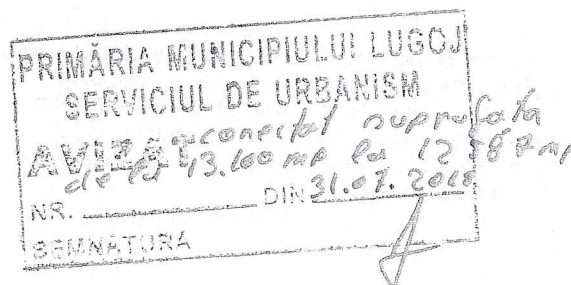 PRIMĂRIA MUNICIPIULUI LUGOJ
SERVICIUL DE URBANISM
AVIZAT corectat suprafata
de la 13.100 mp la 12 587 mp
NR. DIN 31.07.2018
SEMNĂTURA